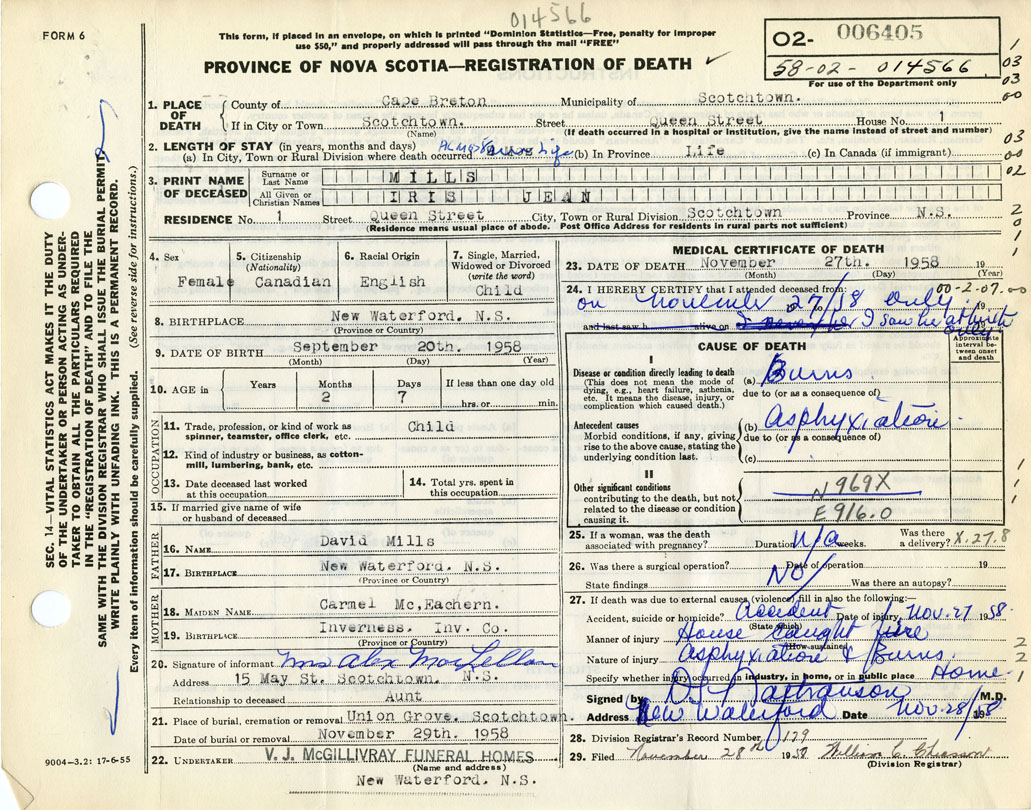 014566
FORM 6
This form, if placed in an envelope, on which is printed "Dominion Statistics—Free, penalty for improper
use $50," and properly addressed will pass through the mail "FREE"
02- 006405
58-02- 014566
For use of the Department only
PROVINCE OF NOVA SCOTIA—REGISTRATION OF DEATH ✓
1
03
03
00
03
00
02
2
0
1
1. PLACE OF DEATH
County of Cape Breton Municipality of Scotchtown.
If in City or Town Scotchtown. Street Queen Street House No. 1
(Name) (If death occurred in a hospital or institution, give the name instead of street and number)
2. LENGTH OF STAY (in years, months and days)
(a) In City, Town or Rural Division where death occurred Life (b) In Province Life (c) In Canada (if immigrant)
3. PRINT NAME OF DECEASED
Surname or Last Name MILLS
All Given or Christian Names IRIS JEAN
RESIDENCE No. 1 Street Queen Street City, Town or Rural Division Scotchtown Province N.S.
(Residence means usual place of abode. Post Office Address for residents in rural parts not sufficient)
4. Sex
Female
5. Citizenship
(Nationality)
Canadian
6. Racial Origin
English
7. Single, Married,
Widowed or Divorced
(write the word)
Child
8. BIRTHPLACE New Waterford. N.S.
(Province or Country)
9. DATE OF BIRTH September 20th. 1958
(Month) (Day) (Year)
10. AGE in
Years Months Days If less than one day old
2 7 hrs. or min.
OCCUPATION
11. Trade, profession, or kind of work as
spinner, teamster, office clerk, etc. Child
12. Kind of industry or business, as cotton-
mill, lumbering, bank, etc.
13. Date deceased last worked
at this occupation
14. Total yrs. spent in
this occupation
15. If married give name of wife
or husband of deceased
FATHER
16. NAME David Mills
17. BIRTHPLACE New Waterford. N.S.
(Province or Country)
MOTHER
18. MAIDEN NAME Carmel Mc,Eachern.
19. BIRTHPLACE Inverness. Inv. Co.
(Province or Country)
20. Signature of informant Mrs Alex MacLellan
Address 15 May St. Scotchtown. N.S.
Relationship to deceased Aunt
21. Place of burial, cremation or removal Union Grove. Scotchtown.
Date of burial or removal November 29th. 1958
22. UNDERTAKER V. J. McGILLIVRAY FUNERAL HOMES
(Name and address)
New Waterford. N.S.
MEDICAL CERTIFICATE OF DEATH
23. DATE OF DEATH November 27th. 1958 19
(Month) (Day) (Year)
24. I HEREBY CERTIFY that I attended deceased from: 00-2-07.00
on November 27/18 only 19
and last saw h alive on I saw her at birth
only
CAUSE OF DEATH
Approximate
interval be-
tween onset
and death
I
Disease or condition directly leading to death
(This does not mean the mode of
dying, e.g., heart failure, asthenia,
etc. It means the disease, injury, or
complication which caused death.)
(a) Burns
due to (or as a consequence of)
Antecedent causes
Morbid conditions, if any, giving
rise to the above cause, stating the
underlying condition last.
(b) Asphyxiation
due to (or as a consequence of)
(c)
II
Other significant conditions
contributing to the death, but not
related to the disease or condition
causing it.
N969X
E916.0
1
1
1
25. If a woman, was the death
associated with pregnancy? Duration N/A weeks. Was there
a delivery? X.27.8
26. Was there a surgical operation? No Date of operation 19
State findings Was there an autopsy?
27. If death was due to external causes (violence) fill in also the following:—
Accident, suicide or homicide? Accident Date of injury Nov.27 1958
(State which)
Manner of injury House Caught fire
(How sustained)
Nature of injury Asphyxiation & Burns.
Specify whether injury occurred in industry, in home, or in public place Home
2
2
1
Signed by M.D.
Address New Waterford Date Nov.28/58 19
28. Division Registrar's Record Number 129
29. Filed November 28th 1958 William C Chiasson
(Division Registrar)
SEC. 14—VITAL STATISTICS ACT MAKES IT THE DUTY
OF THE UNDERTAKER OR PERSON ACTING AS UNDER-
TAKER TO OBTAIN ALL THE PARTICULARS REQUIRED
IN THE "REGISTRATION OF DEATH" AND TO FILE THE
SAME WITH THE DIVISION REGISTRAR WHO SHALL ISSUE THE BURIAL PERMIT.
WRITE PLAINLY WITH UNFADING INK. THIS IS A PERMANENT RECORD.
Every item of information should be carefully supplied. (See reverse side for instructions.)
9004-3.2: 17-6-55